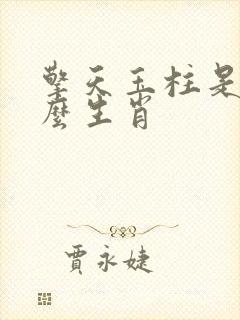 擎天玉柱是
麼生肖
賈永婕